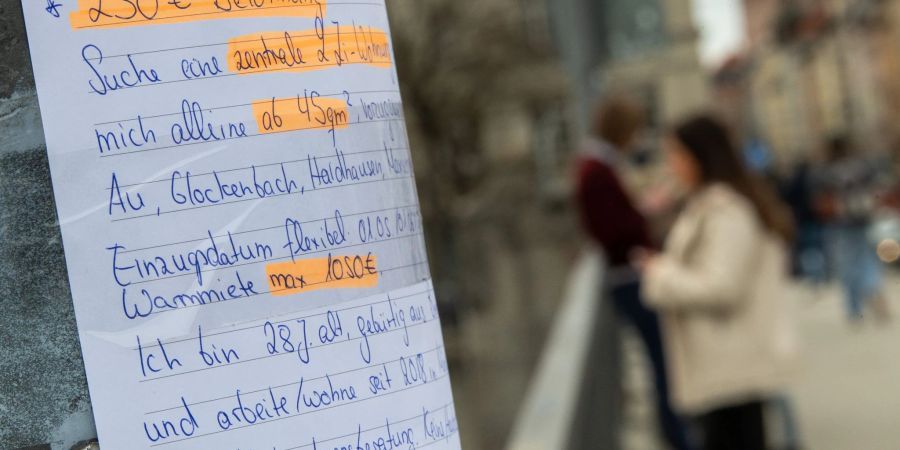 * 250€ Belohnung
Suche eine zentrale 2 Zi-Wohnun
mich alleine ab 45qm²,
Au, Glockenbach, Haidhausen,
Einzugsdatum flexibel 01.05
Warmmiete max 1050€
Ich bin 28 J. alt, gebürtig aus
und arbeite/wohne seit 2018 in